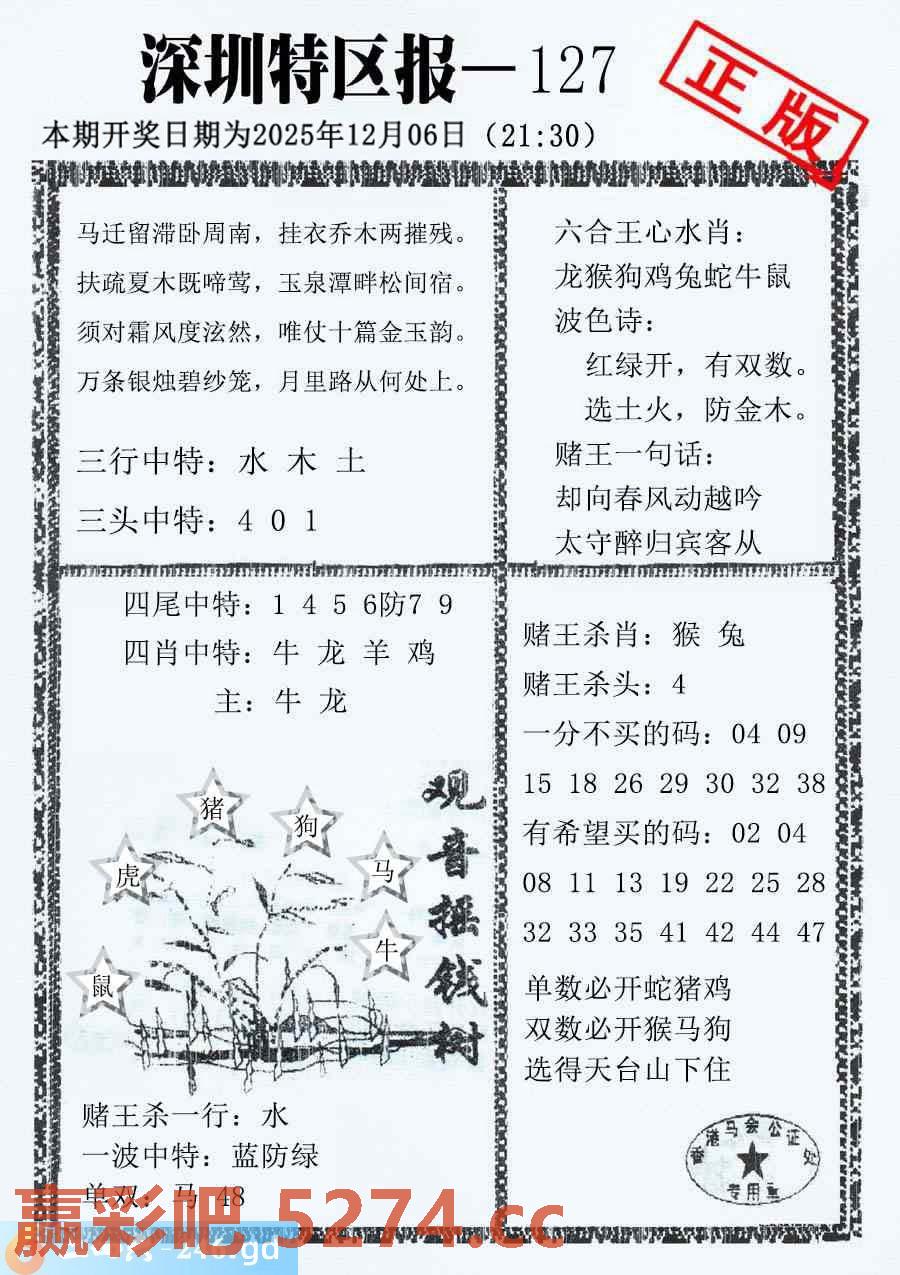 深圳特区报—127
正版
本期开奖日期为2025年12月06日（21:30）
马迁留滞卧周南，挂衣乔木两摧残。
扶疏夏木既啼莺，玉泉潭畔松间宿。
须对霜风度泫然，唯仗十篇金玉韵。
万条银烛碧纱笼，月里路从何处上。
三行中特：水 木 土
三头中特：4 0 1
六合王心水肖：
龙猴狗鸡兔蛇牛鼠
波色诗：
红绿开，有双数。
选土火，防金木。
赌王一句话：
却向春风动越吟
太守醉归宾客从
四尾中特：1 4 5 6防7 9
四肖中特：牛 龙 羊 鸡
主：牛 龙
观音摇钱树
猪
狗
虎
马
牛
鼠
赌王杀一行：水
一波中特：蓝防绿
单双：马 48
赌王杀肖：猴 兔
赌王杀头：4
一分不买的码：04 09
15 18 26 29 30 32 38
有希望买的码：02 04
08 11 13 19 22 25 28
32 33 35 41 42 44 47
单数必开蛇猪鸡
双数必开猴马狗
选得天台山下住
香港马会公证处
专用章
赢彩吧 5274.cc